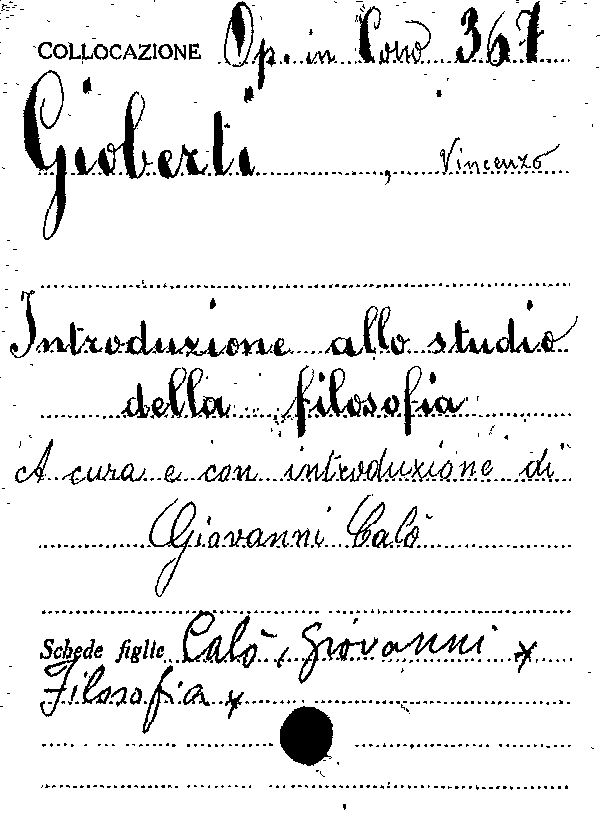 COLLOCAZIONE Op. in Corso 367
Gioberti , Vincenzo
Introduzione allo studio
della filosofia
A cura e con introduzione di
Giovanni Calò
Schede figlie Calò, Giovanni x
Filosofia x